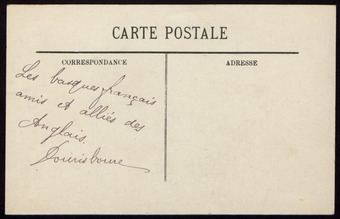 CARTE POSTALE
CORRESPONDANCE
ADRESSE
Les basques français
amis et alliés des
Anglais.